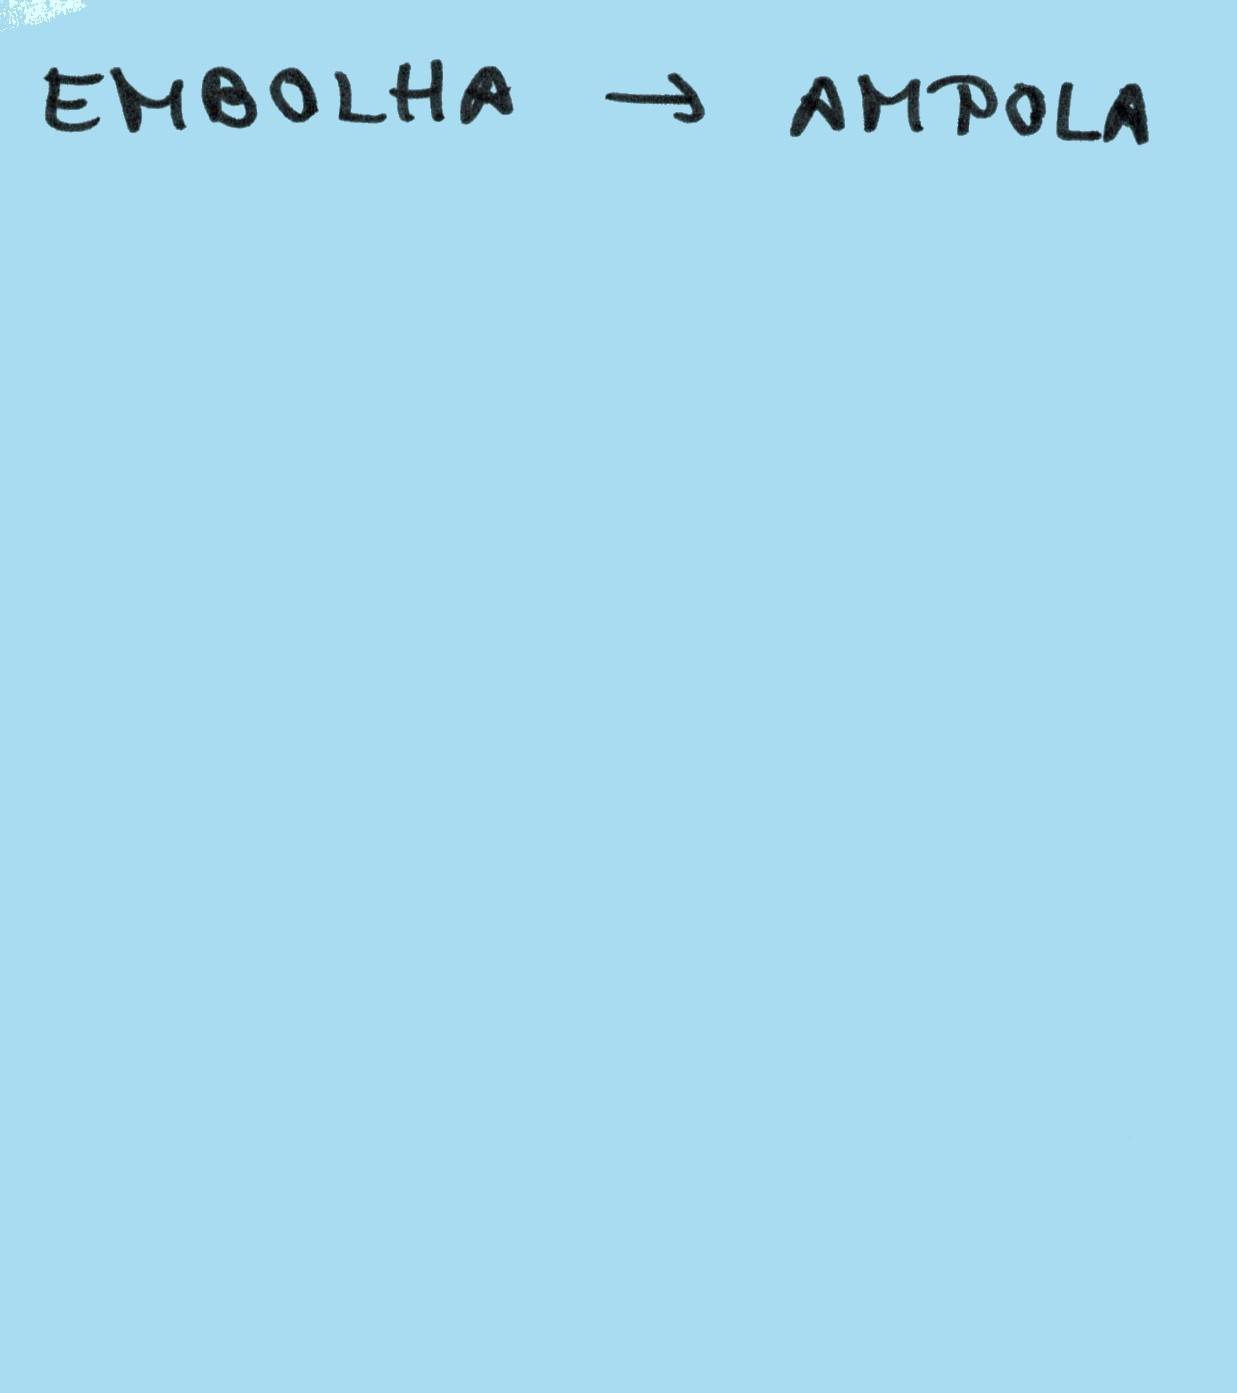 EMBOLHA → AMPOLA